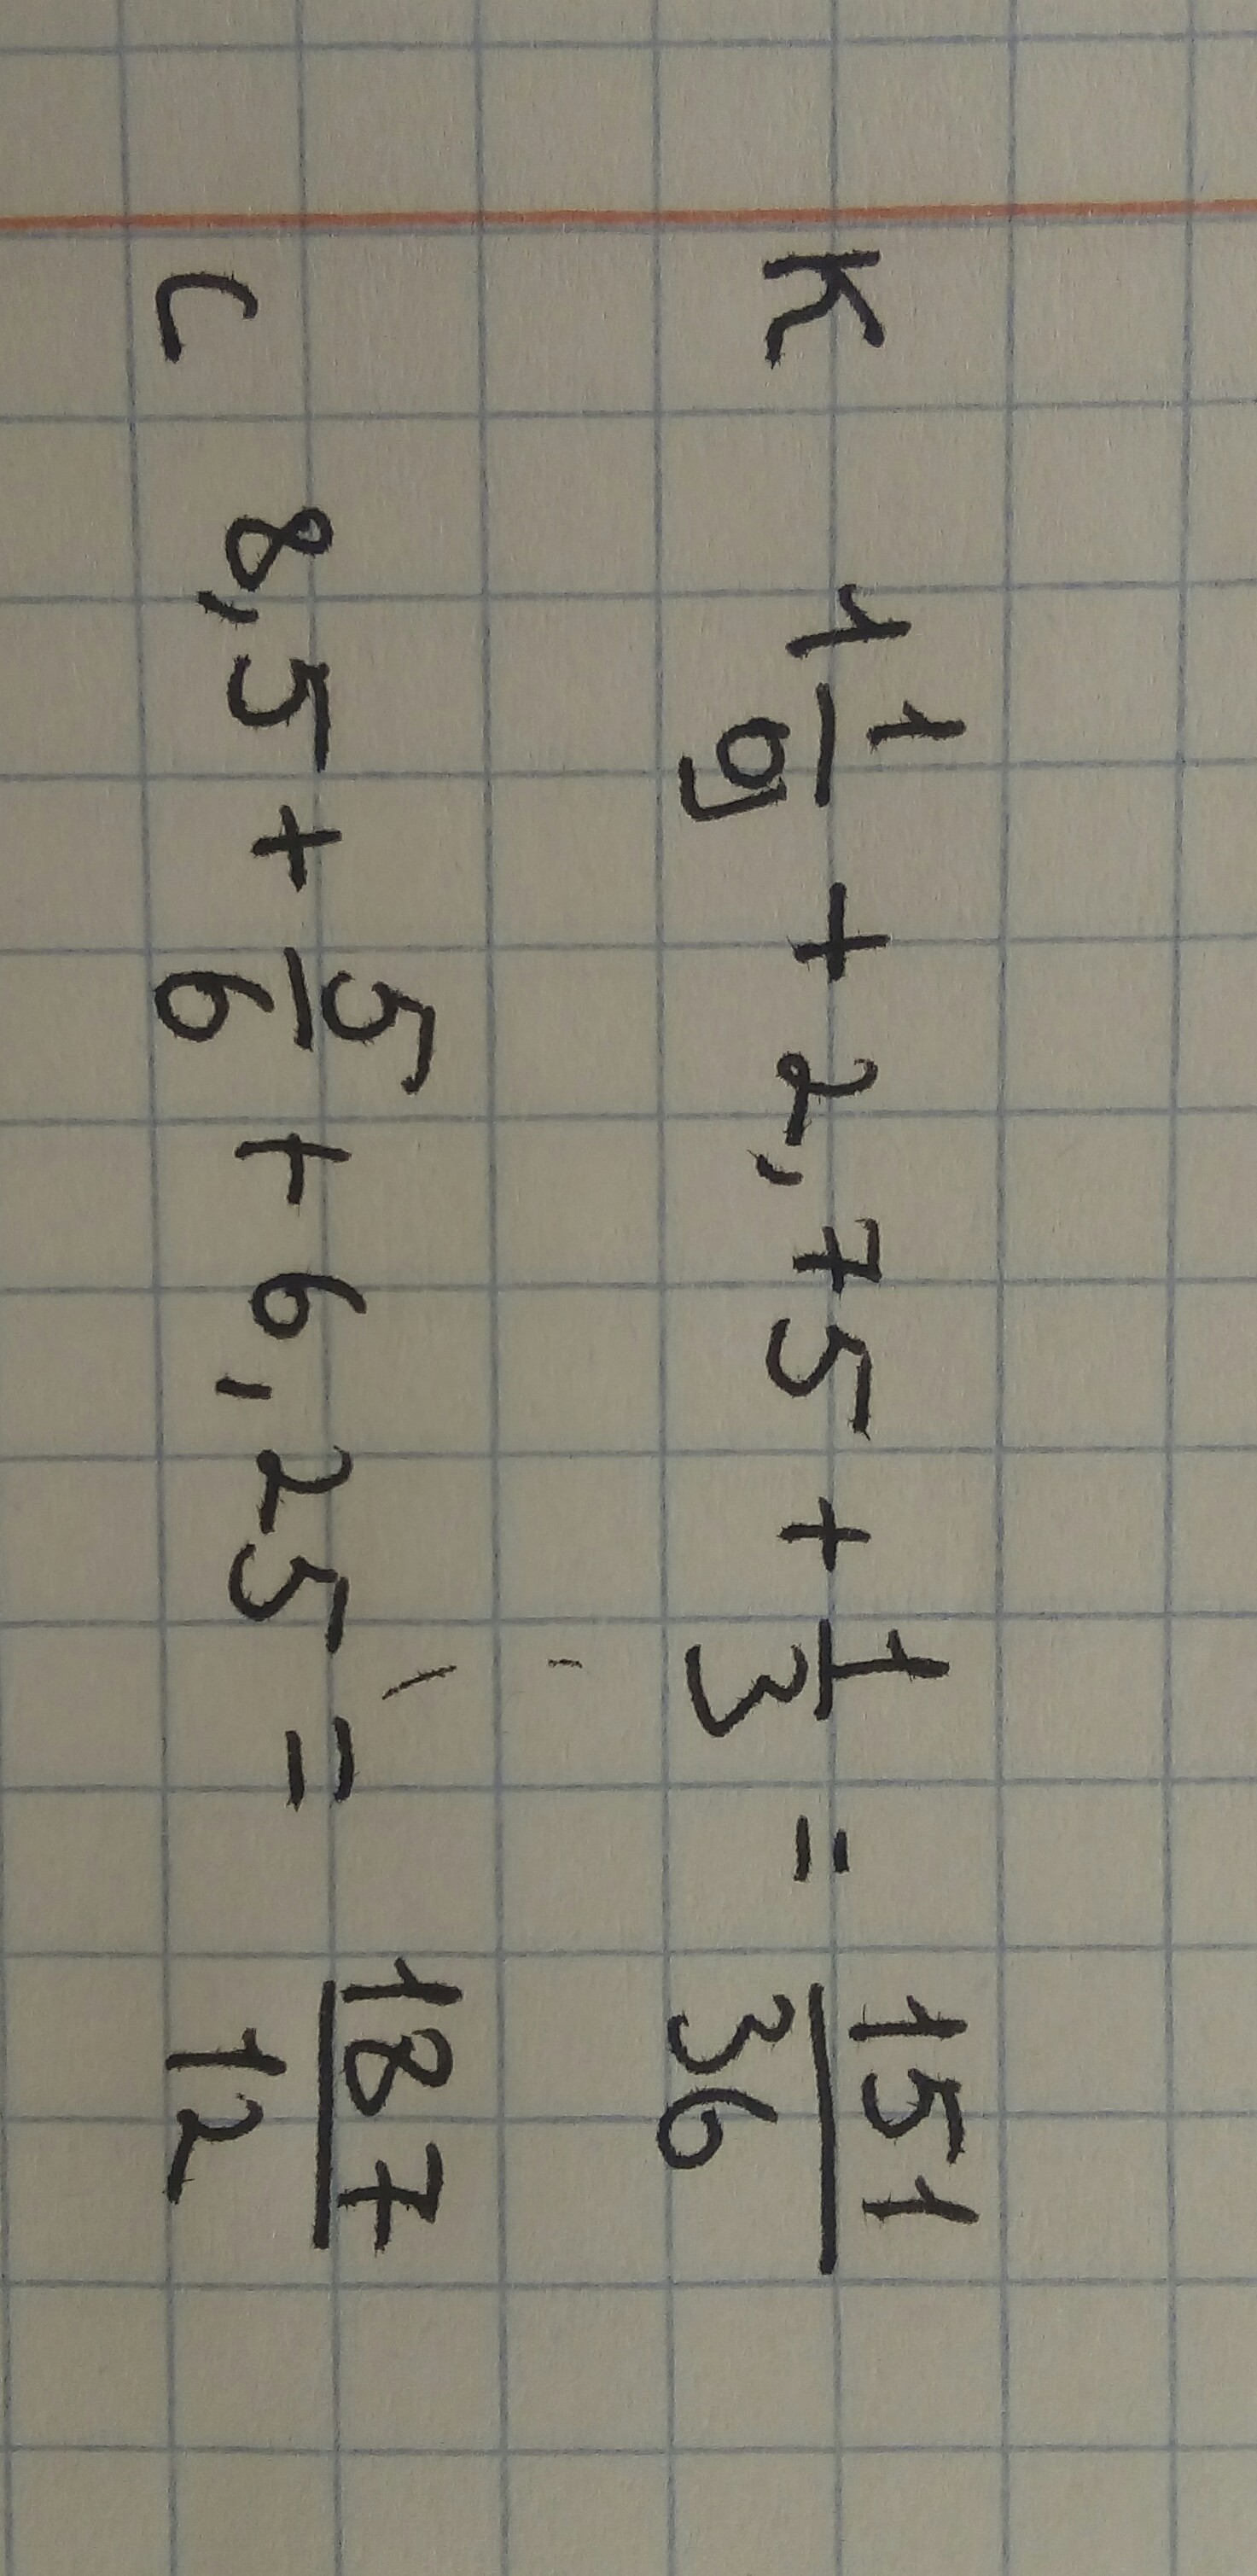 K 1 1/9 + 2,75 + 1/3 = 151/36
L 8,5 + 5/6 + 6,25 = 187/12